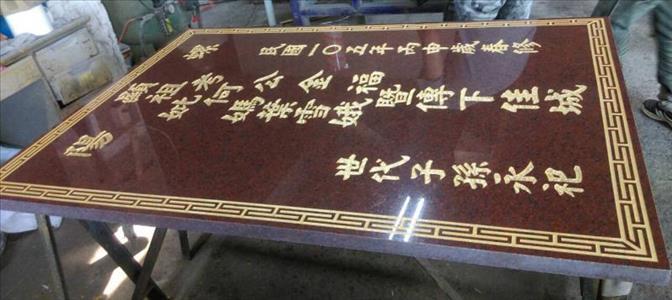 螺陽
民國一〇五年丙申歲春修
顯祖考何公金福
妣媽葉雪娥暨傳下佳城
世代子孫永祀